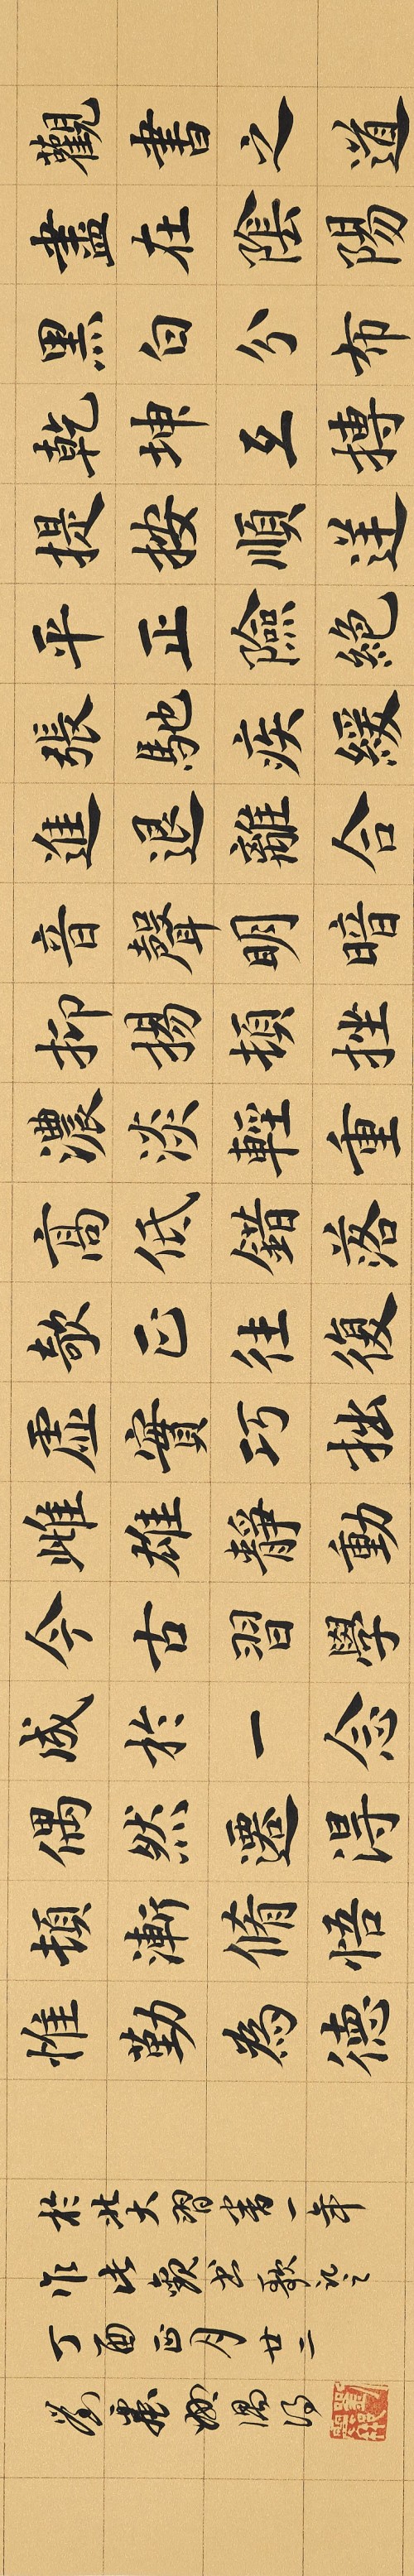 觀書之道
盡在陰陽
黑白分布
乾坤互搏
提按順逆
平正險絕
張馳疾緩
進退離合
音聲明暗
抑揚頓挫
濃淡輕重
高低錯落
欹正往復
虛實巧拙
雌雄靜動
今古習學
成於一念
偶然遷得
頓漸脩悟
惟勤為德
於北大習書一年
作此觀書歌記之
丁酉正月廿二